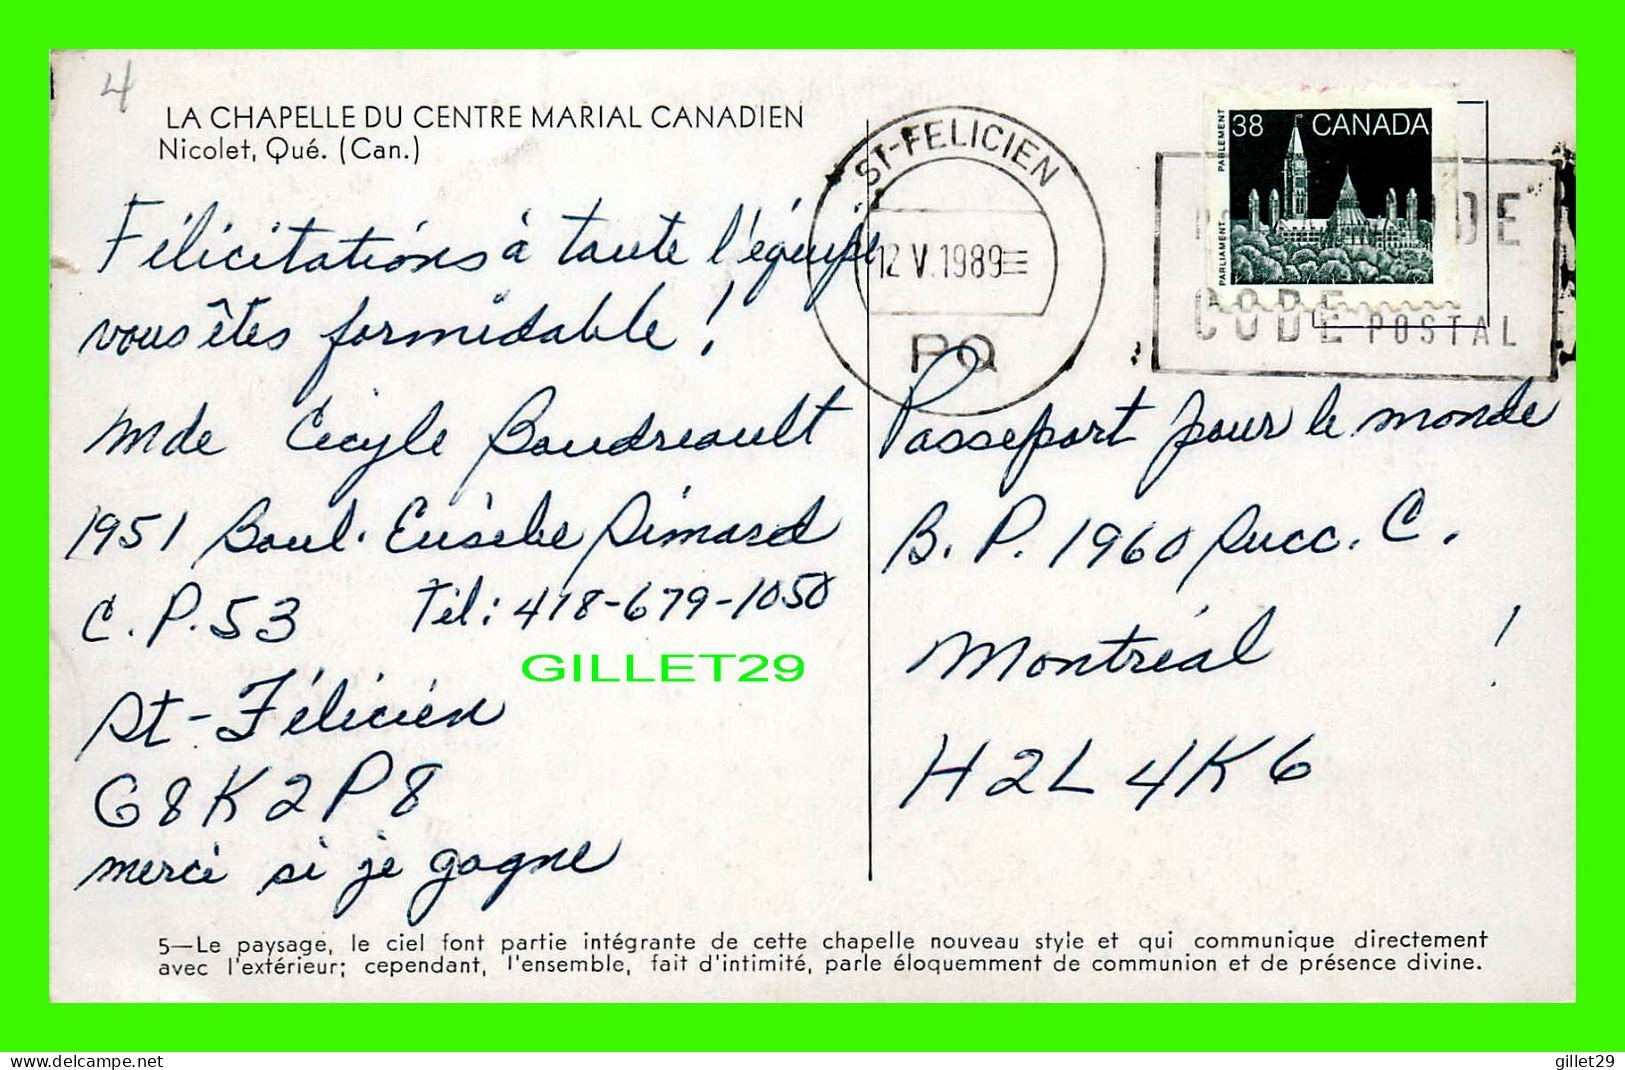 4
LA CHAPELLE DU CENTRE MARIAL CANADIEN
Nicolet, Qué. (Can.)
Félicitations à toute l'équipe
vous êtes formidable !
Mde Cécyle Boudreault
1951 Boul. Eusèbe Simard
C.P. 53 Tél: 418-679-1050
St-Félicien
G8K2P8
merci si je gagne
ST-FELICIEN
12 V.1989
PQ
38 CANADA
PARLIAMENT PARLEMENT
DE
CODE POSTAL
Passeport pour le monde
B.P. 1960 Succ. C.
Montréal !
H2L 4K6
GILLET29
5—Le paysage, le ciel font partie intégrante de cette chapelle nouveau style et qui communique directement
avec l'extérieur; cependant, l'ensemble, fait d'intimité, parle éloquemment de communion et de présence divine.
delcampe.net
gillet29